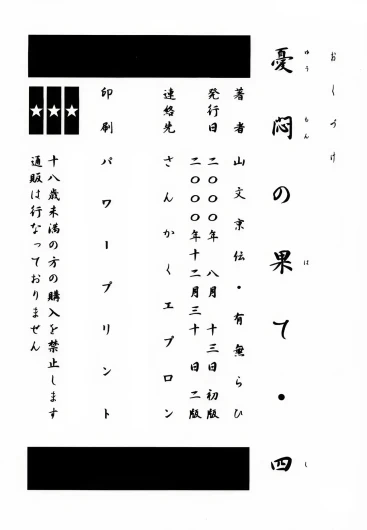 おしづけ
憂悶の果て・四
ゆうもん は し
著者 山文京伝・有無らひ
発行日 二〇〇〇年 八月 十三日 初版
二〇〇〇年十二月三十 日 二版
連絡先 さんかくエプロン
印刷 パワープリント
十八歳未満の方の購入を禁止します
通販は行なっておりません